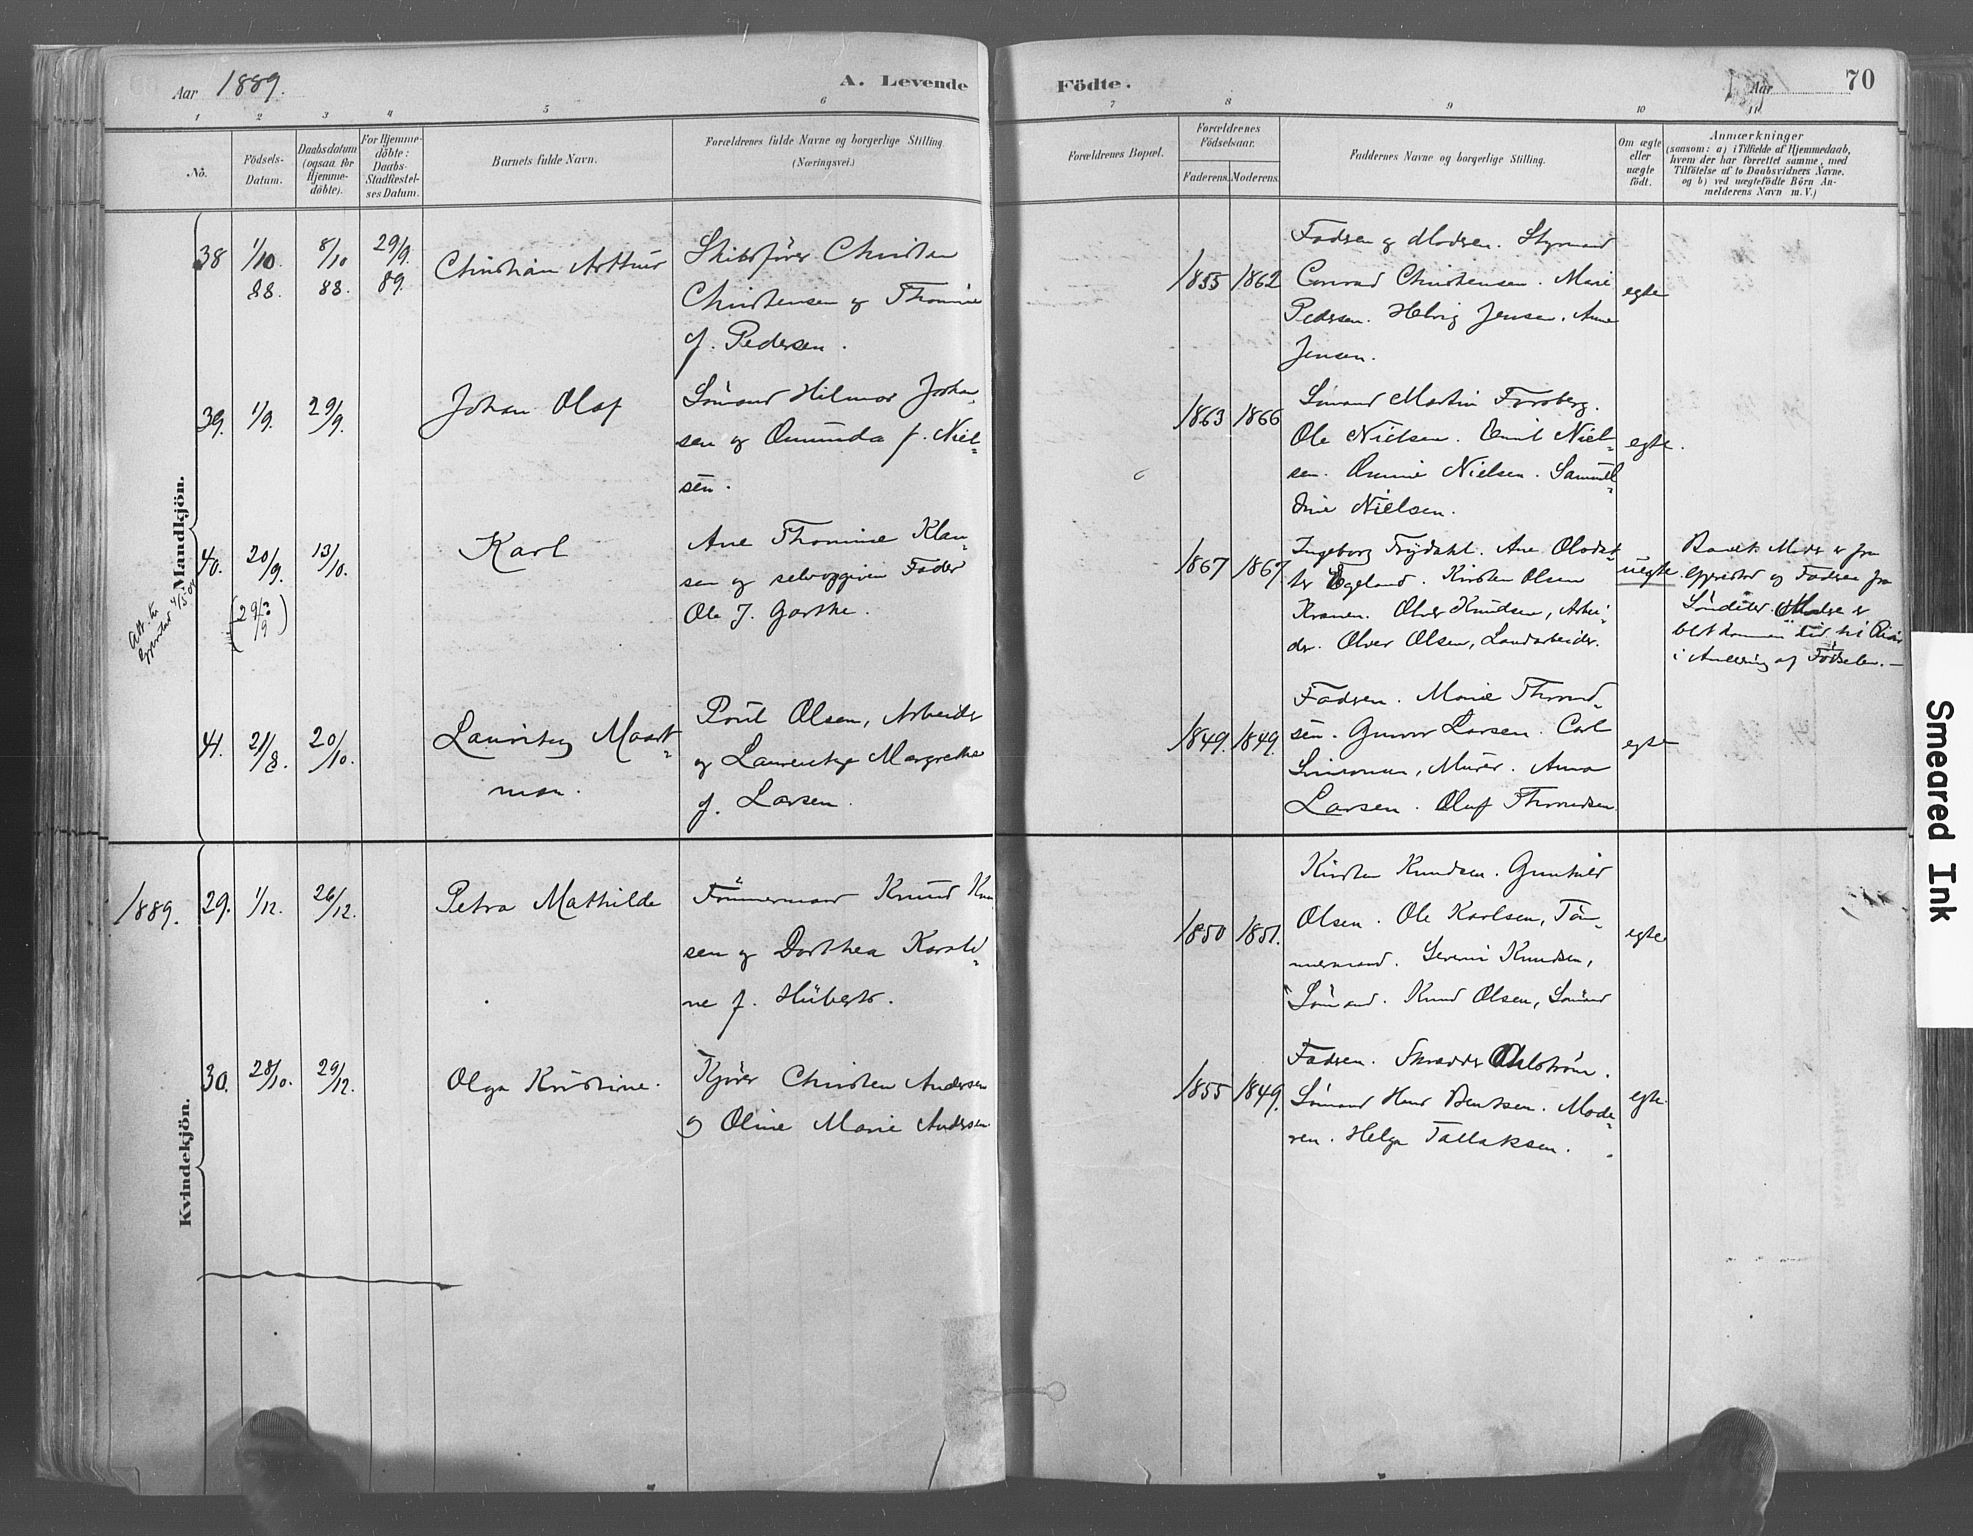 Aar 1889.
A. Levende
Födte.
Aar
70
1 2 3 4 5 6 7 8 9 10 11
No.
Födsels-
Datum.
Daabsdatum
(ogsaa for
Hjemme-
döbte).
For Hjemme-
döbte:
Daabs-
Stadfæstel-
ses Datum.
Barnets fulde Navn.
Forældrenes fulde Navne og borgerlige Stilling
(Næringsvei.)
Forældrenes Bopæl.
Forældrenes
Födselsaar.
Faderens. Moderens.
Faddernes Navne og borgerlige Stilling.
Om ægte
eller
uægte
födt.
Anmærkninger
(saasom: a) i Tilfælde af Hjemmedaab,
hvem der har forrettet samme, med
Tilföielse af to Daabsvidners Navne,
og b) ved uægtefödte Börn An-
melderens Navn m. V.)
Mandkjön.
38 1/10. 88. 8/10 88. 29/9. 89.
Christian Arthur
Skibsfører Christen
Christensen og Thomine
f. Pedersen.
1855 1862
Fadren og Modren. Styrmand
Conrad Christensen. Marie
Pedersen. Helvig Jensen. Anne
Jensen.
egte
39. 1/9. 29/9.
Johan Olaf
Sömand Hilmar Johan-
sen og Omunda f. Niel-
sen.
1863 1866
Sömand Martin Forsberg.
Ole Nielsen. Emil Niel-
sen. Nielsen. Samuel-
ine Nielsen.
egte.
40. 20/9. 13/10.
(29/9)
Att. til
Gjerstad 4/5 04
Karl
Ane Thomine Klau-
sen og selvopgiven Fader
Ole J. Garthe.
1867 1867
Ingeborg Frydahl. Ane Olsdat-
ter Egeland. Kirsten Olsen
Kranen. Olver Knudsen, Arbei-
der. Olver Olsen, Landarbeider.
uegte
Barnets Moder er fra
Gjerstad og Fadren fra
Söndeled. Modren er
blot kommen hid til Risør
i Anledning af Födselen.—
41. 21/8. 20/10.
Lauritz Maart-
man.
Poul Olsen, Arbeider
og Laurentze Margrethe
f. Larsen.
1849. 1849.
Fadren. Marie Thrond-
sen. Gunvor Larsen. Carl
Simonsen, Murer. Anna
Larsen. Oluf Throndsen.
egte
Kvindekjön.
1889. 29. 1/12. 26/12.
Petra Mathilde
Tömmermand Knud Knu
sen og Dorthea Karoli-
ne f. Huberts.
1850 1851.
Kirsten Knudsen. Gunhild
Olsen. Ole Karlsen, Töm-
mermand. Severin Knudsen,
Sömand. Knud Olsen, Sömand
egte
30. 28/10. 29/12.
Olga Kristine.
Kjører Christen Andersen
og Oline Marie Andersen
1855 1849.
Fadren. Skrædder Dalström.
Sömand Hans Bentsen. Mode-
ren. Helga Tallaksen.
egte.
Smeared Ink